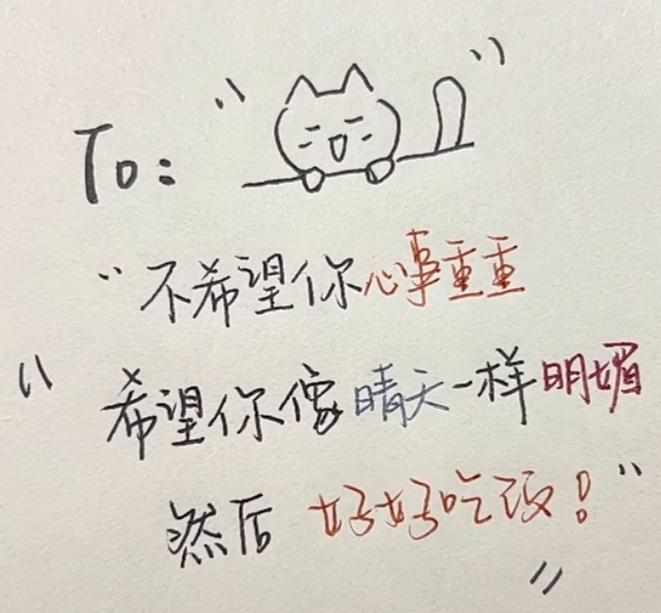 To:
"不希望你心事重重
希望你像晴天一样明媚
然后 好好吃饭!"